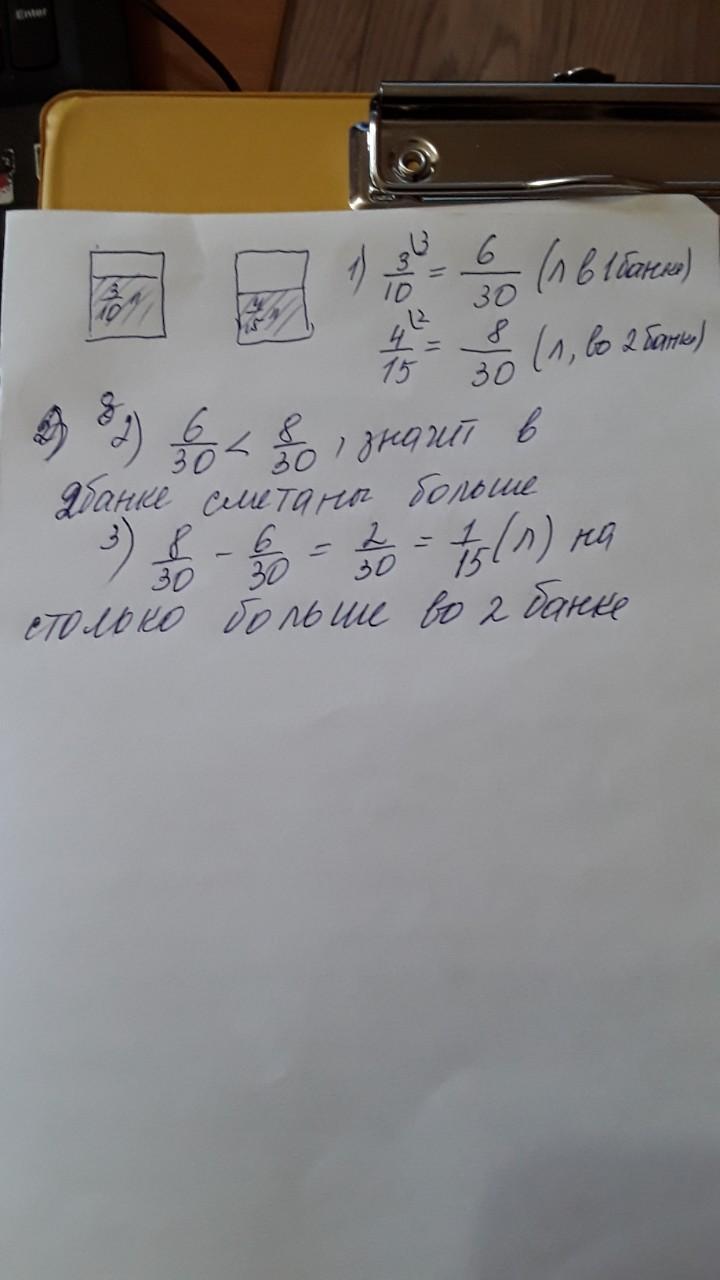 Enter
3/10 л
4/15 л
1) 3\3/10 = 6/30 (л в 1 банке)
4\2/15 = 8/30 (л, во 2 банк)
2) 6/30 < 8/30, значит в
2банке сметаны больше
3) 8/30 - 6/30 = 2/30 = 1/15 (л) на
столько больше во 2 банке